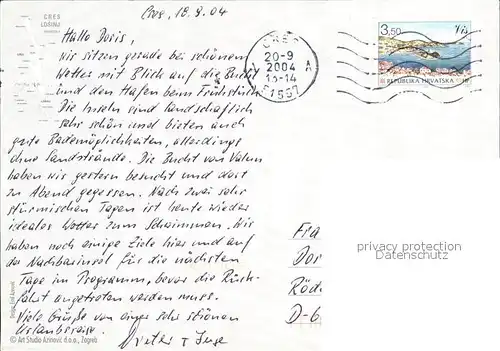 CRES
LOŠINJ
Cres, 18.9.04
Hallo Doris,
wir sitzen gerade bei schönem
Wetter mit Blick auf die Bucht
und den Hafen beim Frühstück.
Die Inseln sind landschaftlich
sehr schön und bieten auch
gute Bademöglichkeiten, allerdings
ohne Sandstrände. Die Bucht von Valun
haben wir gestern besucht und dort
zu Abend gegessen. Nach zwei sehr
stürmischen Tagen ist heute wieder
ideales Wetter zum Schwimmen. Wir
haben noch einige Ziele hier und auf
der Nachbarinsel für die nächsten
Tage im Programm, bevor die Rück-
fahrt angetreten werden muss.
Viele Grüße von einer sehr schönen
Urlaubsreise.
Dieter + Inge
CRES
20-9
2004
13-14
A
51557
3,50
Vis
REPUBLIKA HRVATSKA
Fra
Dor
Röde
D-6
privacy protection
Datenschutz
© Art Studio Azinović d.o.o., Zagreb